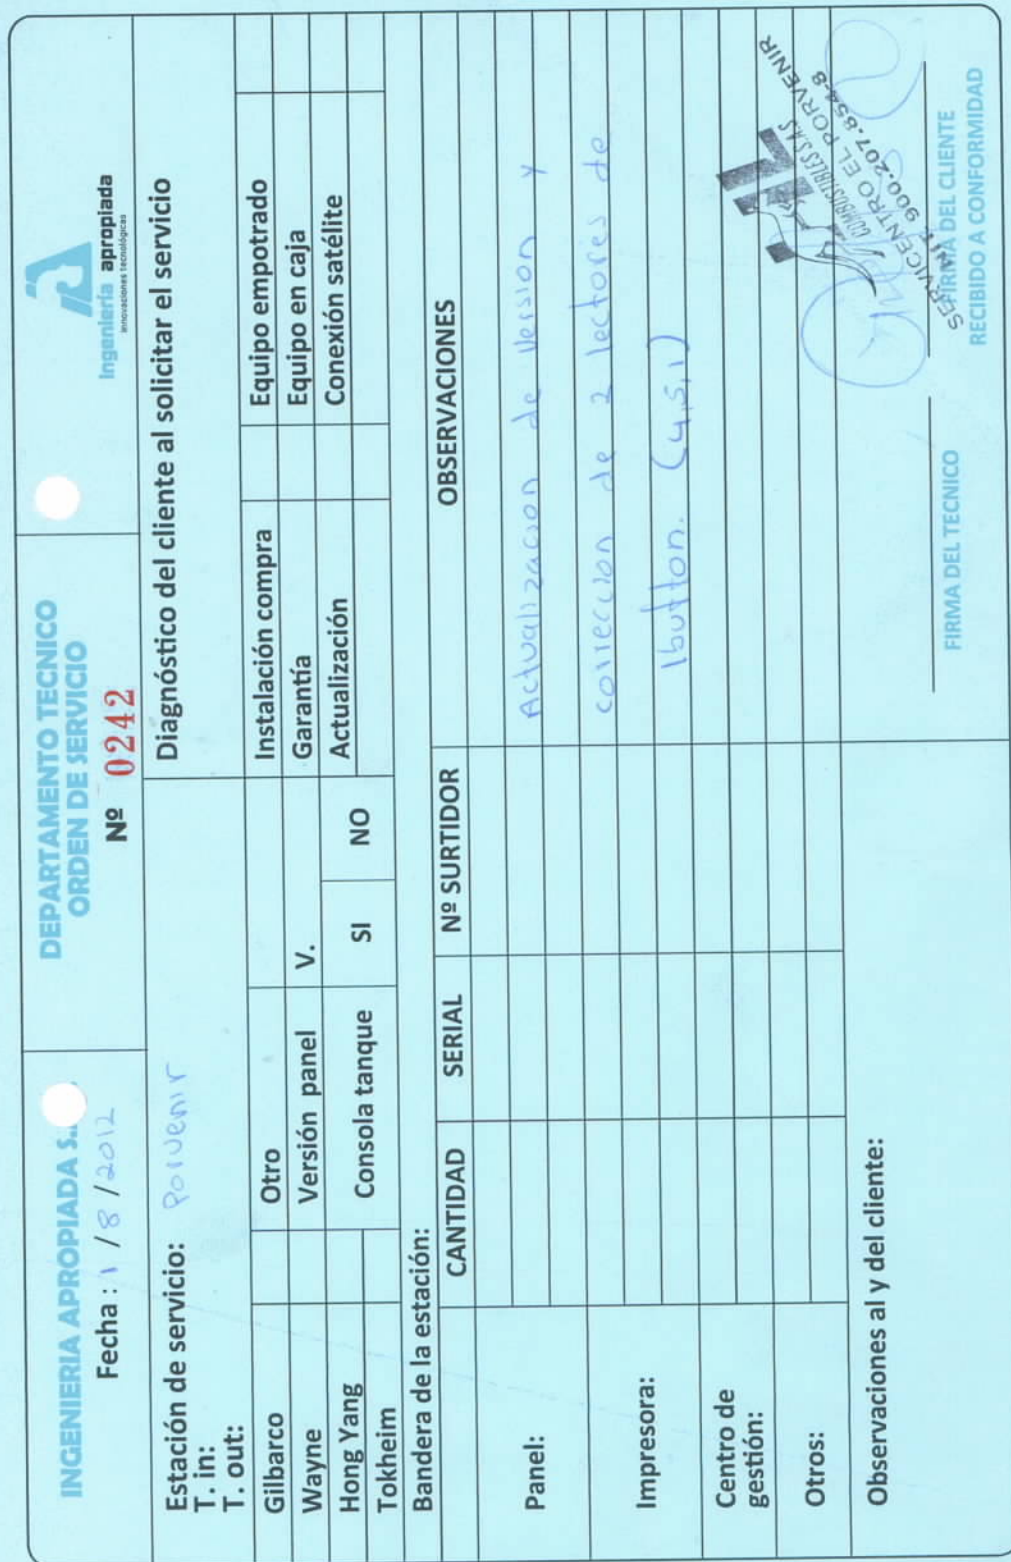 INGENIERIA APROPIADA S.
Fecha : 1 / 8 / 2012
DEPARTAMENTO TECNICO
ORDEN DE SERVICIO
Nº 0242
Ingeniería apropiada
innovaciones tecnológicas
Estación de servicio: Porvenir
T. in:
T. out:
Diagnóstico del cliente al solicitar el servicio
Gilbarco Otro Instalación compra Equipo empotrado
Wayne Versión panel V. Garantía Equipo en caja
Hong Yang Consola tanque SI NO Actualización Conexión satélite
Tokheim
Bandera de la estación:
CANTIDAD SERIAL Nº SURTIDOR OBSERVACIONES
Panel:
Actualizacion de version y
correccion de 2 lectores de
Impresora:
Ibutton. (4,5,1)
Centro de
gestión:
Otros:
Observaciones al y del cliente:
FIRMA DEL TECNICO
COMBUSTIBLES S.A.S
SERVICENTRO EL PORVENIR
NIT 900.207.854-8
FIRMA DEL CLIENTE
RECIBIDO A CONFORMIDAD